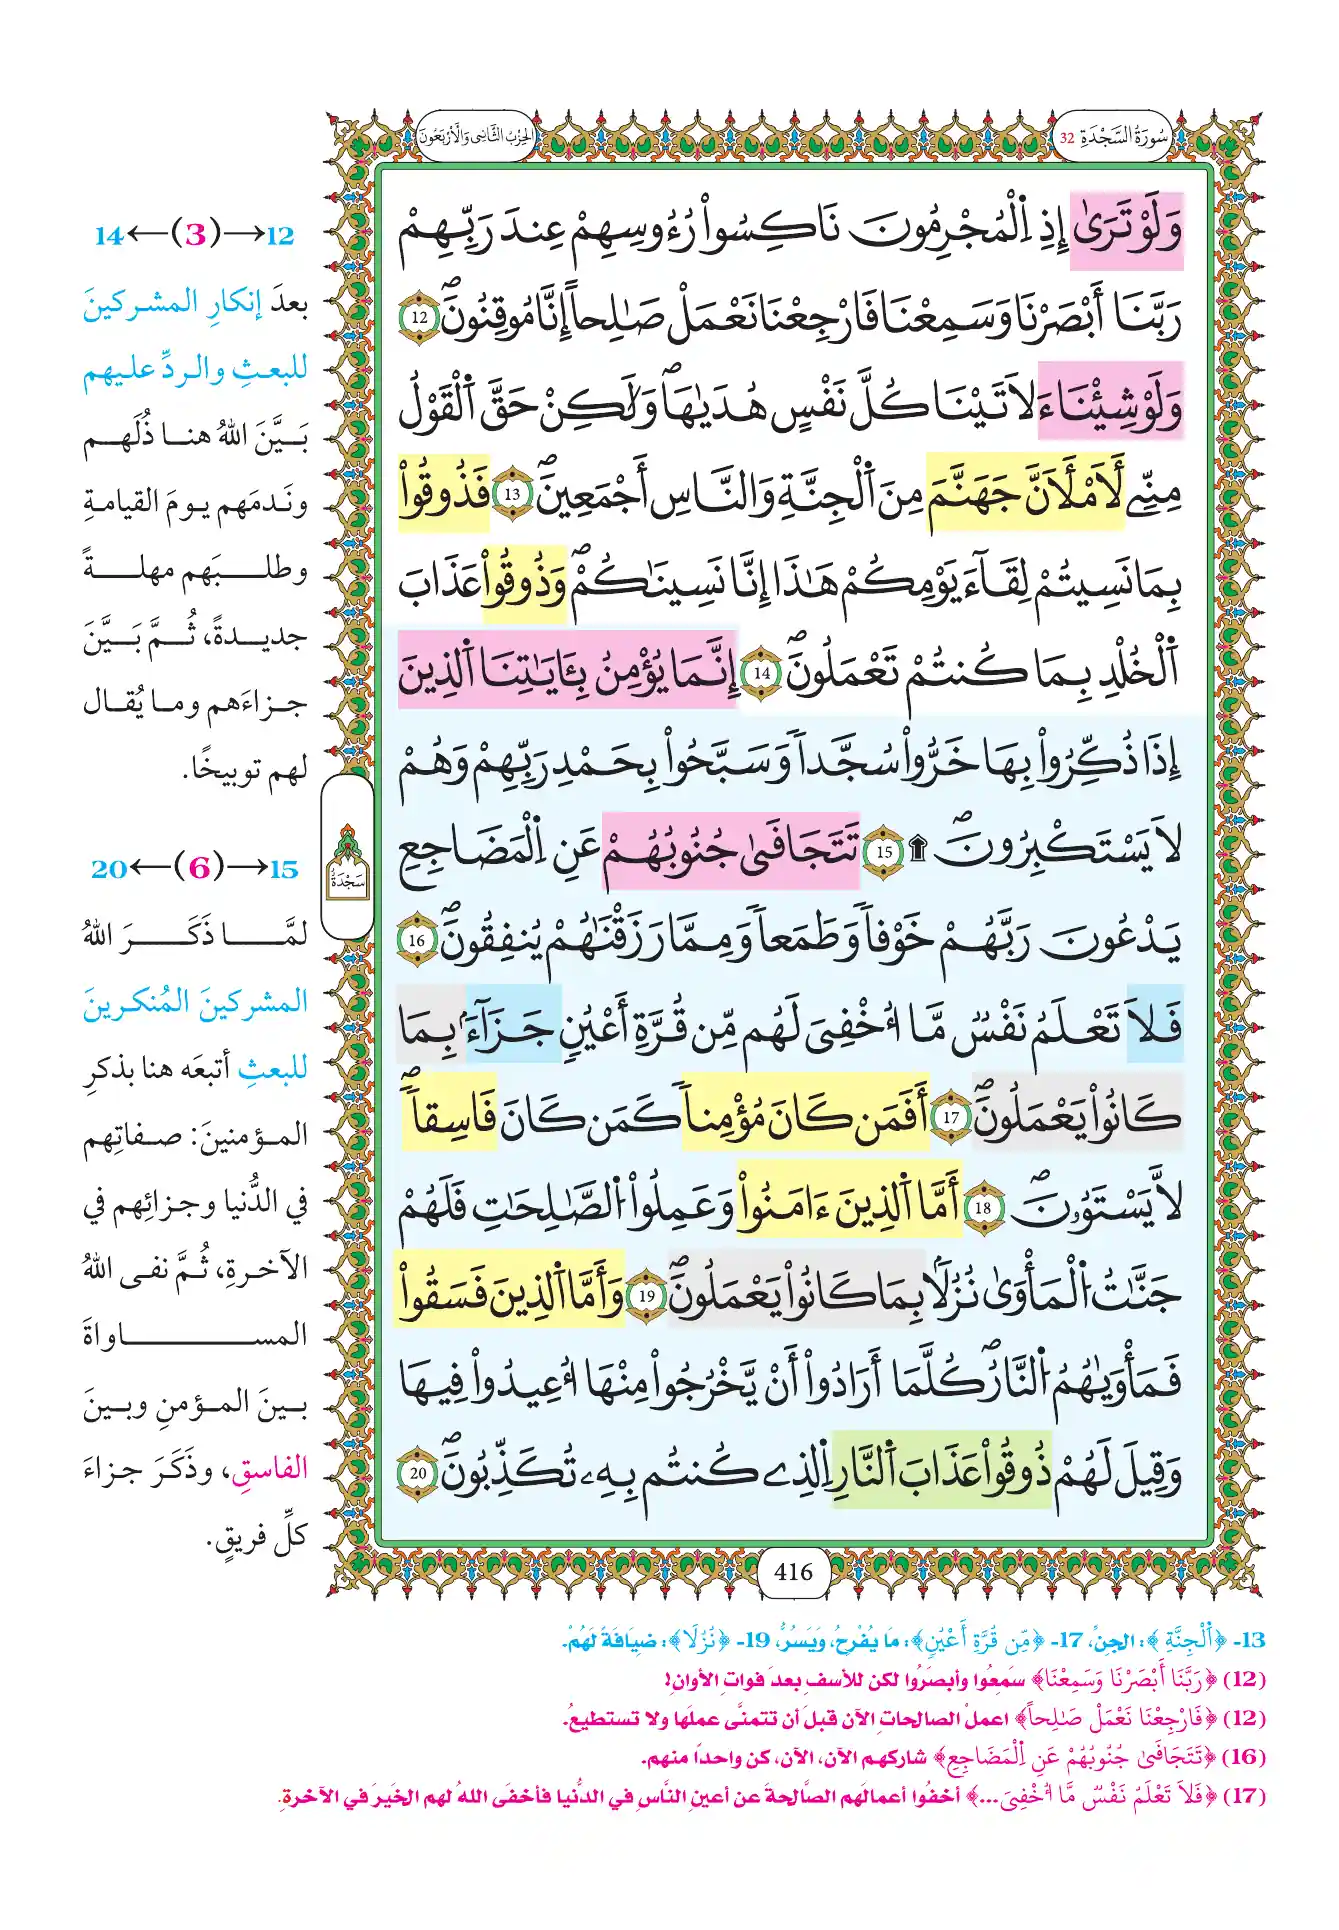 سُورَةُ السَّجْدَةِ 32
الحِزْبُ الثَّانِي وَالأَرْبَعُونَ
وَلَوْ تَرَىٰ إِذِ اِ۬لْمُجْرِمُونَ نَاكِسُواْ رُءُوسِهِمْ عِندَ رَبِّهِمْ
رَبَّنَا أَبْصَرْنَا وَسَمِعْنَا فَارْجِعْنَا نَعْمَلْ صَٰلِحاً إِنَّا مُوقِنُونَۖ 12
وَلَوْ شِئْنَاءَ لَاتَيْنَا كُلَّ نَفْسٍ هُدَيٰهَاۖ وَلَٰكِنْ حَقَّ اَ۬لْقَوْلُ
مِنِّے لَأَمْلَأَنَّ جَهَنَّمَ مِنَ اَ۬لْجِنَّةِ وَالنَّاسِ أَجْمَعِينَۖ 13 فَذُوقُواْ
بِمَا نَسِيتُمْ لِقَآءَ يَوْمِكُمْ هَٰذَا إِنَّا نَسِينَٰكُمْۖ وَذُوقُواْ عَذَابَ
اَ۬لْخُلْدِ بِمَا كُنتُمْ تَعْمَلُونَۖ 14 إِنَّمَا يُؤْمِنُ بِـَٔايَٰتِنَا اَ۬لذِينَ
إِذَا ذُكِّرُواْ بِهَا خَرُّواْ سُجَّداً وَسَبَّحُواْ بِحَمْدِ رَبِّهِمْ وَهُمْ
لَا يَسْتَكْبِرُونَۖ ۩ 15 تَتَجَافَىٰ جُنُوبُهُمْ عَنِ اِ۬لْمَضَاجِعِ
يَدْعُونَ رَبَّهُمْ خَوْفاً وَطَمَعاً وَمِمَّا رَزَقْنَٰهُمْ يُنفِقُونَۖ 16
فَلَا تَعْلَمُ نَفْسٌ مَّا أُخْفِيَ لَهُم مِّن قُرَّةِ أَعْيُنٍ جَزَآءً بِمَا
كَانُواْ يَعْمَلُونَۖ 17 أَفَمَن كَانَ مُؤْمِناً كَمَن كَانَ فَاسِقاًۖ
لَّا يَسْتَوُۥنَۖ 18 أَمَّا اَ۬لذِينَ ءَامَنُواْ وَعَمِلُواْ اُ۬لصَّٰلِحَٰتِ فَلَهُمْ
جَنَّٰتُ اُ۬لْمَأْوَىٰ نُزُلاً بِمَا كَانُواْ يَعْمَلُونَۖ 19 وَأَمَّا اَ۬لذِينَ فَسَقُواْ
فَمَأْوَيٰهُمُ اُ۬لنَّارُۖ كُلَّمَا أَرَادُواْ أَنْ يَّخْرُجُواْ مِنْهَا أُعِيدُواْ فِيهَا
وَقِيلَ لَهُمْ ذُوقُواْ عَذَابَ اَ۬لنَّارِ اِ۬لذِے كُنتُم بِهِۦ تُكَذِّبُونَۖ 20
سَجْدَةٌ
416
12→(3)←14
بعدَ إنكارِ المشركينَ
للبعثِ والردِّ عليهم
بَيَّنَ اللهُ هنا ذُلَّهم
ونَدمَهم يومَ القيامةِ
وطلبَهم مهلةً
جديدةً، ثُمَّ بَيَّنَ
جزاءَهم وما يُقال
لهم توبيخًا.
15→(6)←20
لمَّا ذَكَرَ اللهُ
المشركينَ المُنكرينَ
للبعثِ أتبعَه هنا بذكرِ
المؤمنينَ: صفاتِهم
في الدُّنيا وجزائِهم في
الآخرةِ، ثُمَّ نفى اللهُ
المساواةَ
بينَ المؤمنِ وبينَ
الفاسقِ، وذَكَرَ جزاءَ
كلِّ فريقٍ.
13- ﴿اَ۬لْجِنَّةِ﴾: الجِنِّ، 17- ﴿مِّن قُرَّةِ أَعْيُنٍ﴾: مَا يُفْرِحُ، وَيَسُرُّ، 19- ﴿نُزُلاً﴾: ضِيَافَةً لَهُمْ.
(12) ﴿رَبَّنَا أَبْصَرْنَا وَسَمِعْنَا﴾ سَمِعُوا وأبصَرُوا لكن للأسفِ بعدَ فواتِ الأوانِ!
(12) ﴿فَارْجِعْنَا نَعْمَلْ صَٰلِحاً﴾ اعملْ الصالحاتِ الآن قبلَ أن تتمنَّى عملَها ولا تستطيعُ.
(16) ﴿تَتَجَافَىٰ جُنُوبُهُمْ عَنِ اِ۬لْمَضَاجِعِ﴾ شاركهم الآن، الآن، كن واحداً منهم.
(17) ﴿فَلَا تَعْلَمُ نَفْسٌ مَّا أُخْفِيَ...﴾ أخفُوا أعمالَهم الصَّالحةَ عن أعينِ النَّاسِ في الدُّنيا فأخفَى اللهُ لهم الخَيرَ في الآخرةِ.